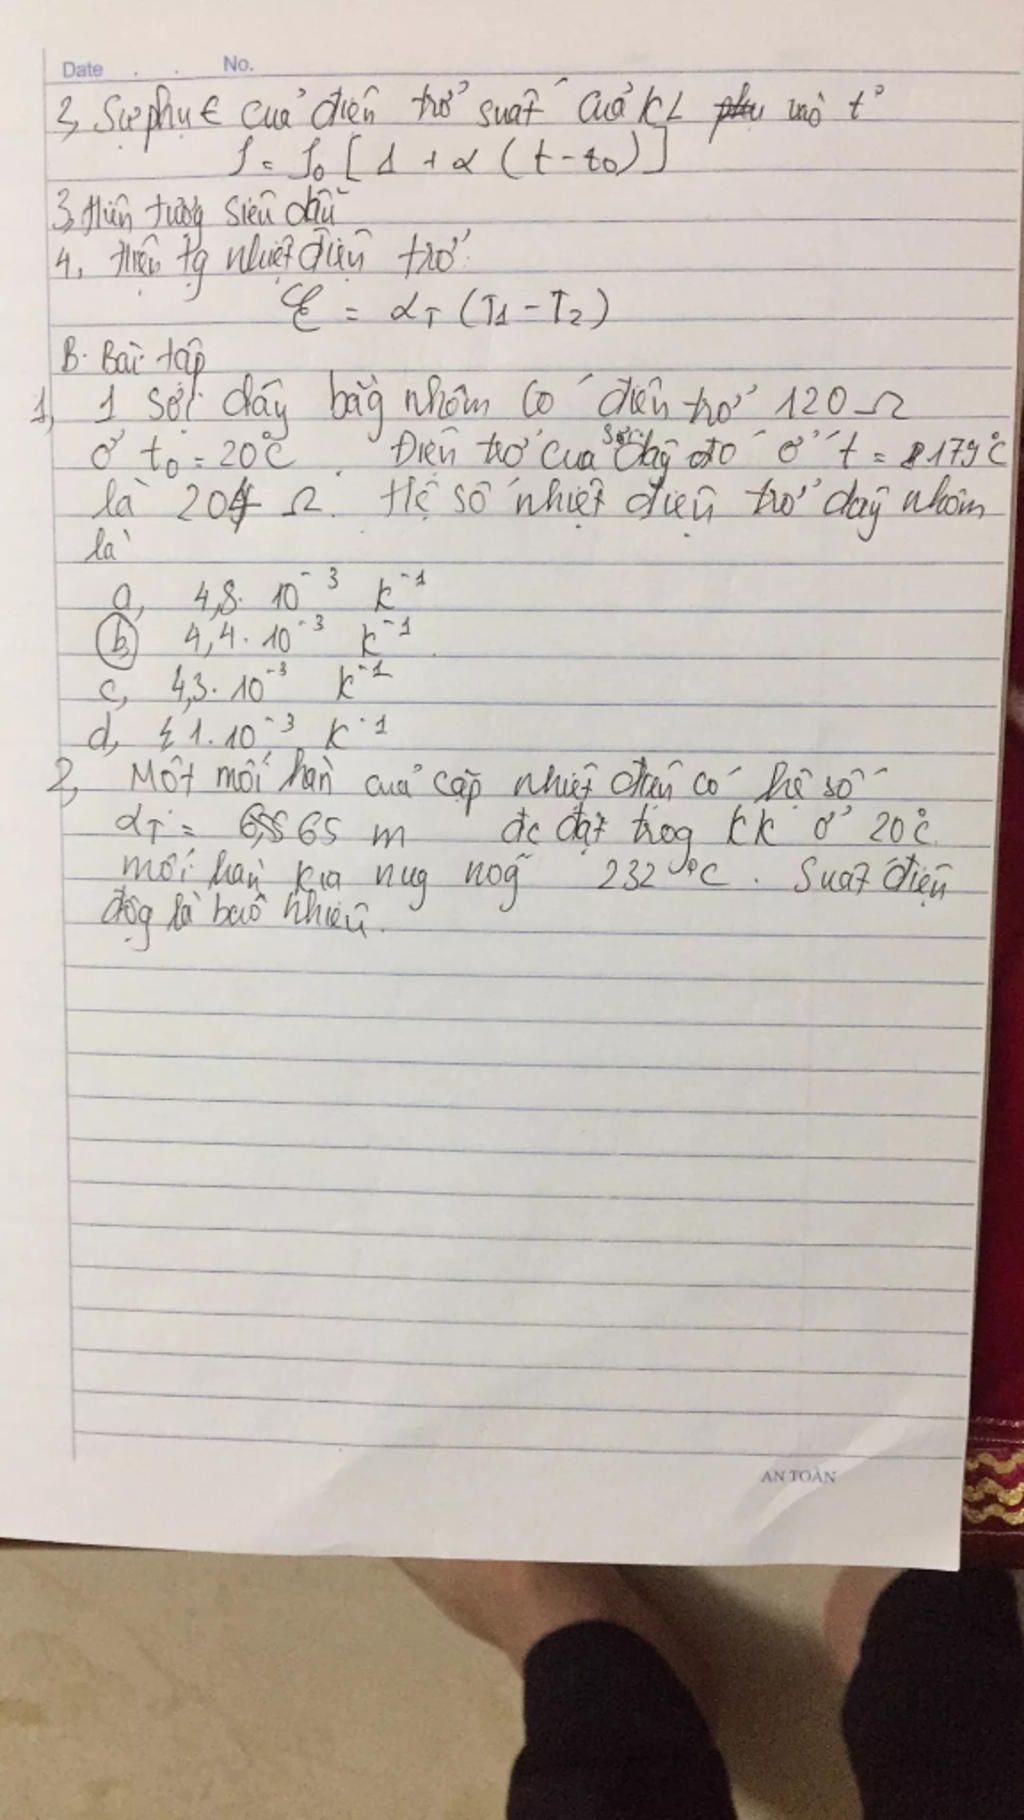 Date . . No.
2, Sự phụ € của điện trở suất của KL vào t°
ρ = ρ₀ [1 + α (t - t₀)]
3, Hiện tượng siêu dẫn
4, Hiện tg nhiệt điện trở
ℰ = α_T (T₁ - T₂)
B. Bài tập
1, 1 sợi dây bằg nhôm có điện trở 120 Ω
ở t₀ = 20°C . Điện trở của sợi dây đó ở t = 179°C
là 204 Ω. Hệ số nhiệt điện trở dây nhôm
là
a, 4,8. 10⁻³ K⁻¹
b, 4,4. 10⁻³ K⁻¹
c, 4,3. 10⁻³ K⁻¹
d, 4,1. 10⁻³ K⁻¹
2, Một mối hàn của cặp nhiệt điện có hệ số
α_T = 65 m đc đặt trog kk ở 20°C
mối hàn kia nug nog 232°C. Suất điện
độg là bao nhiêu.
AN TOÀN